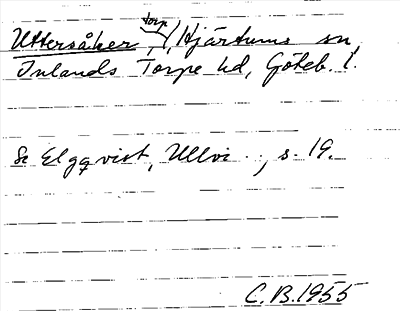 Uttersåker, torp, Hjärtums sn,
Inlands Torpe hd, Göteb. l.
Se Elgqvist, Ullvi .., s. 19.
C.B.1955